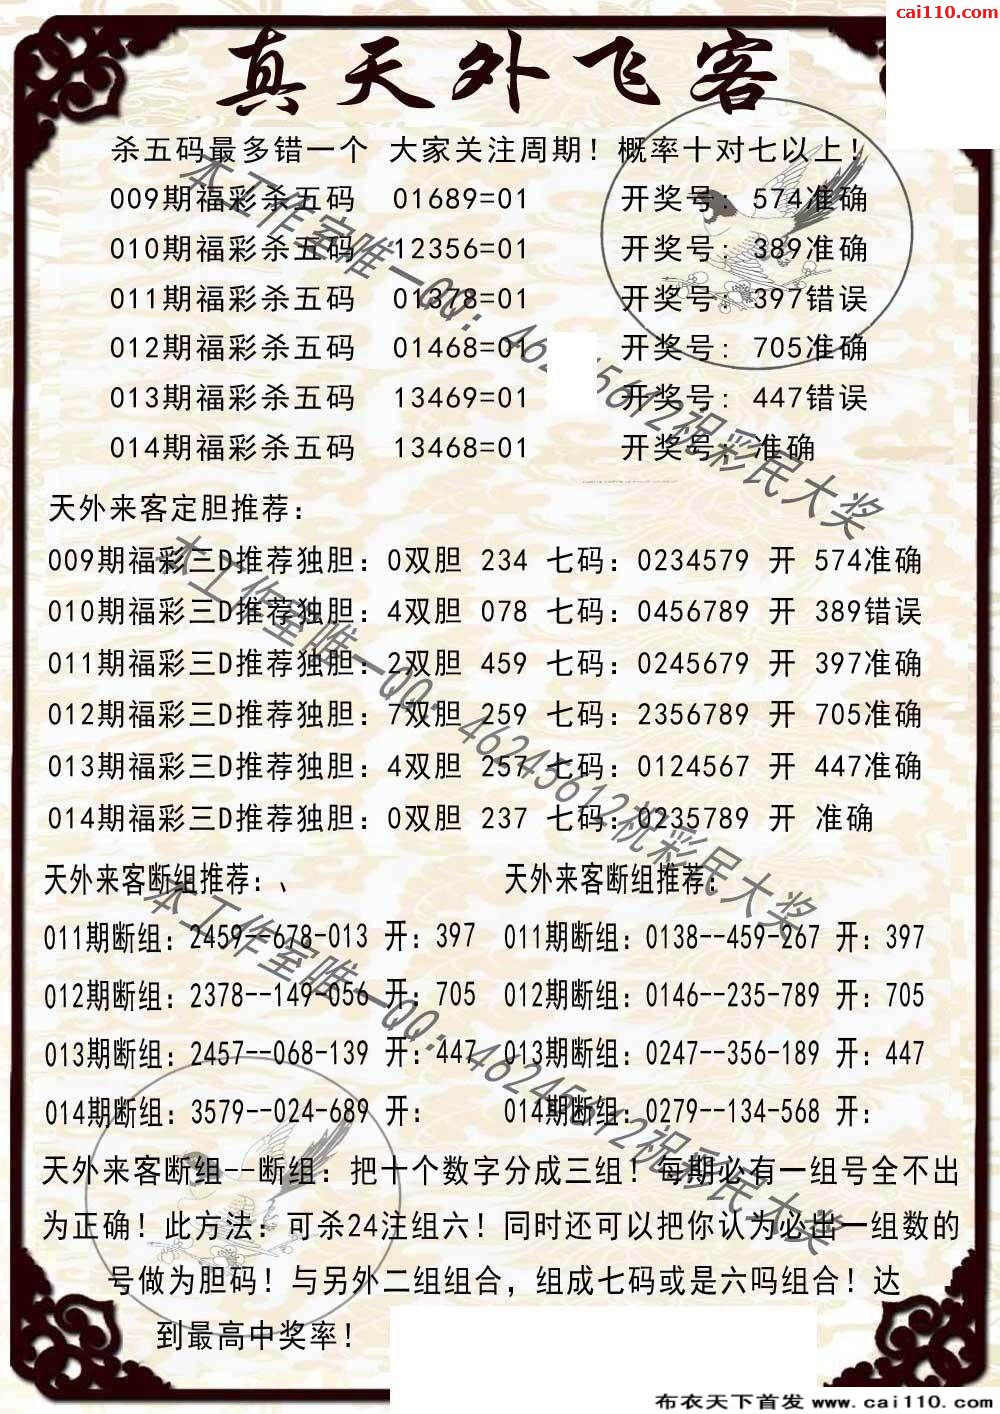 cai110.com
真天外飞客
杀五码最多错一个 大家关注周期！概率十对七以上！
009期福彩杀五码 01689=01 开奖号：574准确
010期福彩杀五码 12356=01 开奖号：389准确
011期福彩杀五码 01378=01 开奖号：397错误
012期福彩杀五码 01468=01 开奖号：705准确
013期福彩杀五码 13469=01 开奖号：447错误
014期福彩杀五码 13468=01 开奖号：准确
天外来客定胆推荐：
009期福彩三D推荐独胆：0双胆 234 七码：0234579 开 574准确
010期福彩三D推荐独胆：4双胆 078 七码：0456789 开 389错误
011期福彩三D推荐独胆：2双胆 459 七码：0245679 开 397准确
012期福彩三D推荐独胆：7双胆 259 七码：2356789 开 705准确
013期福彩三D推荐独胆：4双胆 257 七码：0124567 开 447准确
014期福彩三D推荐独胆：0双胆 237 七码：0235789 开 准确
天外来客断组推荐：、 天外来客断组推荐：
011期断组：2459--678-013 开：397 011期断组：0138--459-267 开：397
012期断组：2378--149-056 开：705 012期断组：0146--235-789 开：705
013期断组：2457--068-139 开：447 013期断组：0247--356-189 开：447
014期断组：3579--024-689 开： 014期断组：0279--134-568 开：
天外来客断组--断组：把十个数字分成三组！每期必有一组号全不出
为正确！此方法：可杀24注组六！同时还可以把你认为必出一组数的
号做为胆码！与另外二组组合，组成七码或是六吗组合！达
到最高中奖率！
本工作室唯一QQ：46245612祝彩民大奖
本工作室唯一QQ：46245612祝彩民大奖
本工作室唯一QQ：46245612祝彩民大奖
布衣天下首发 www.cai110.com